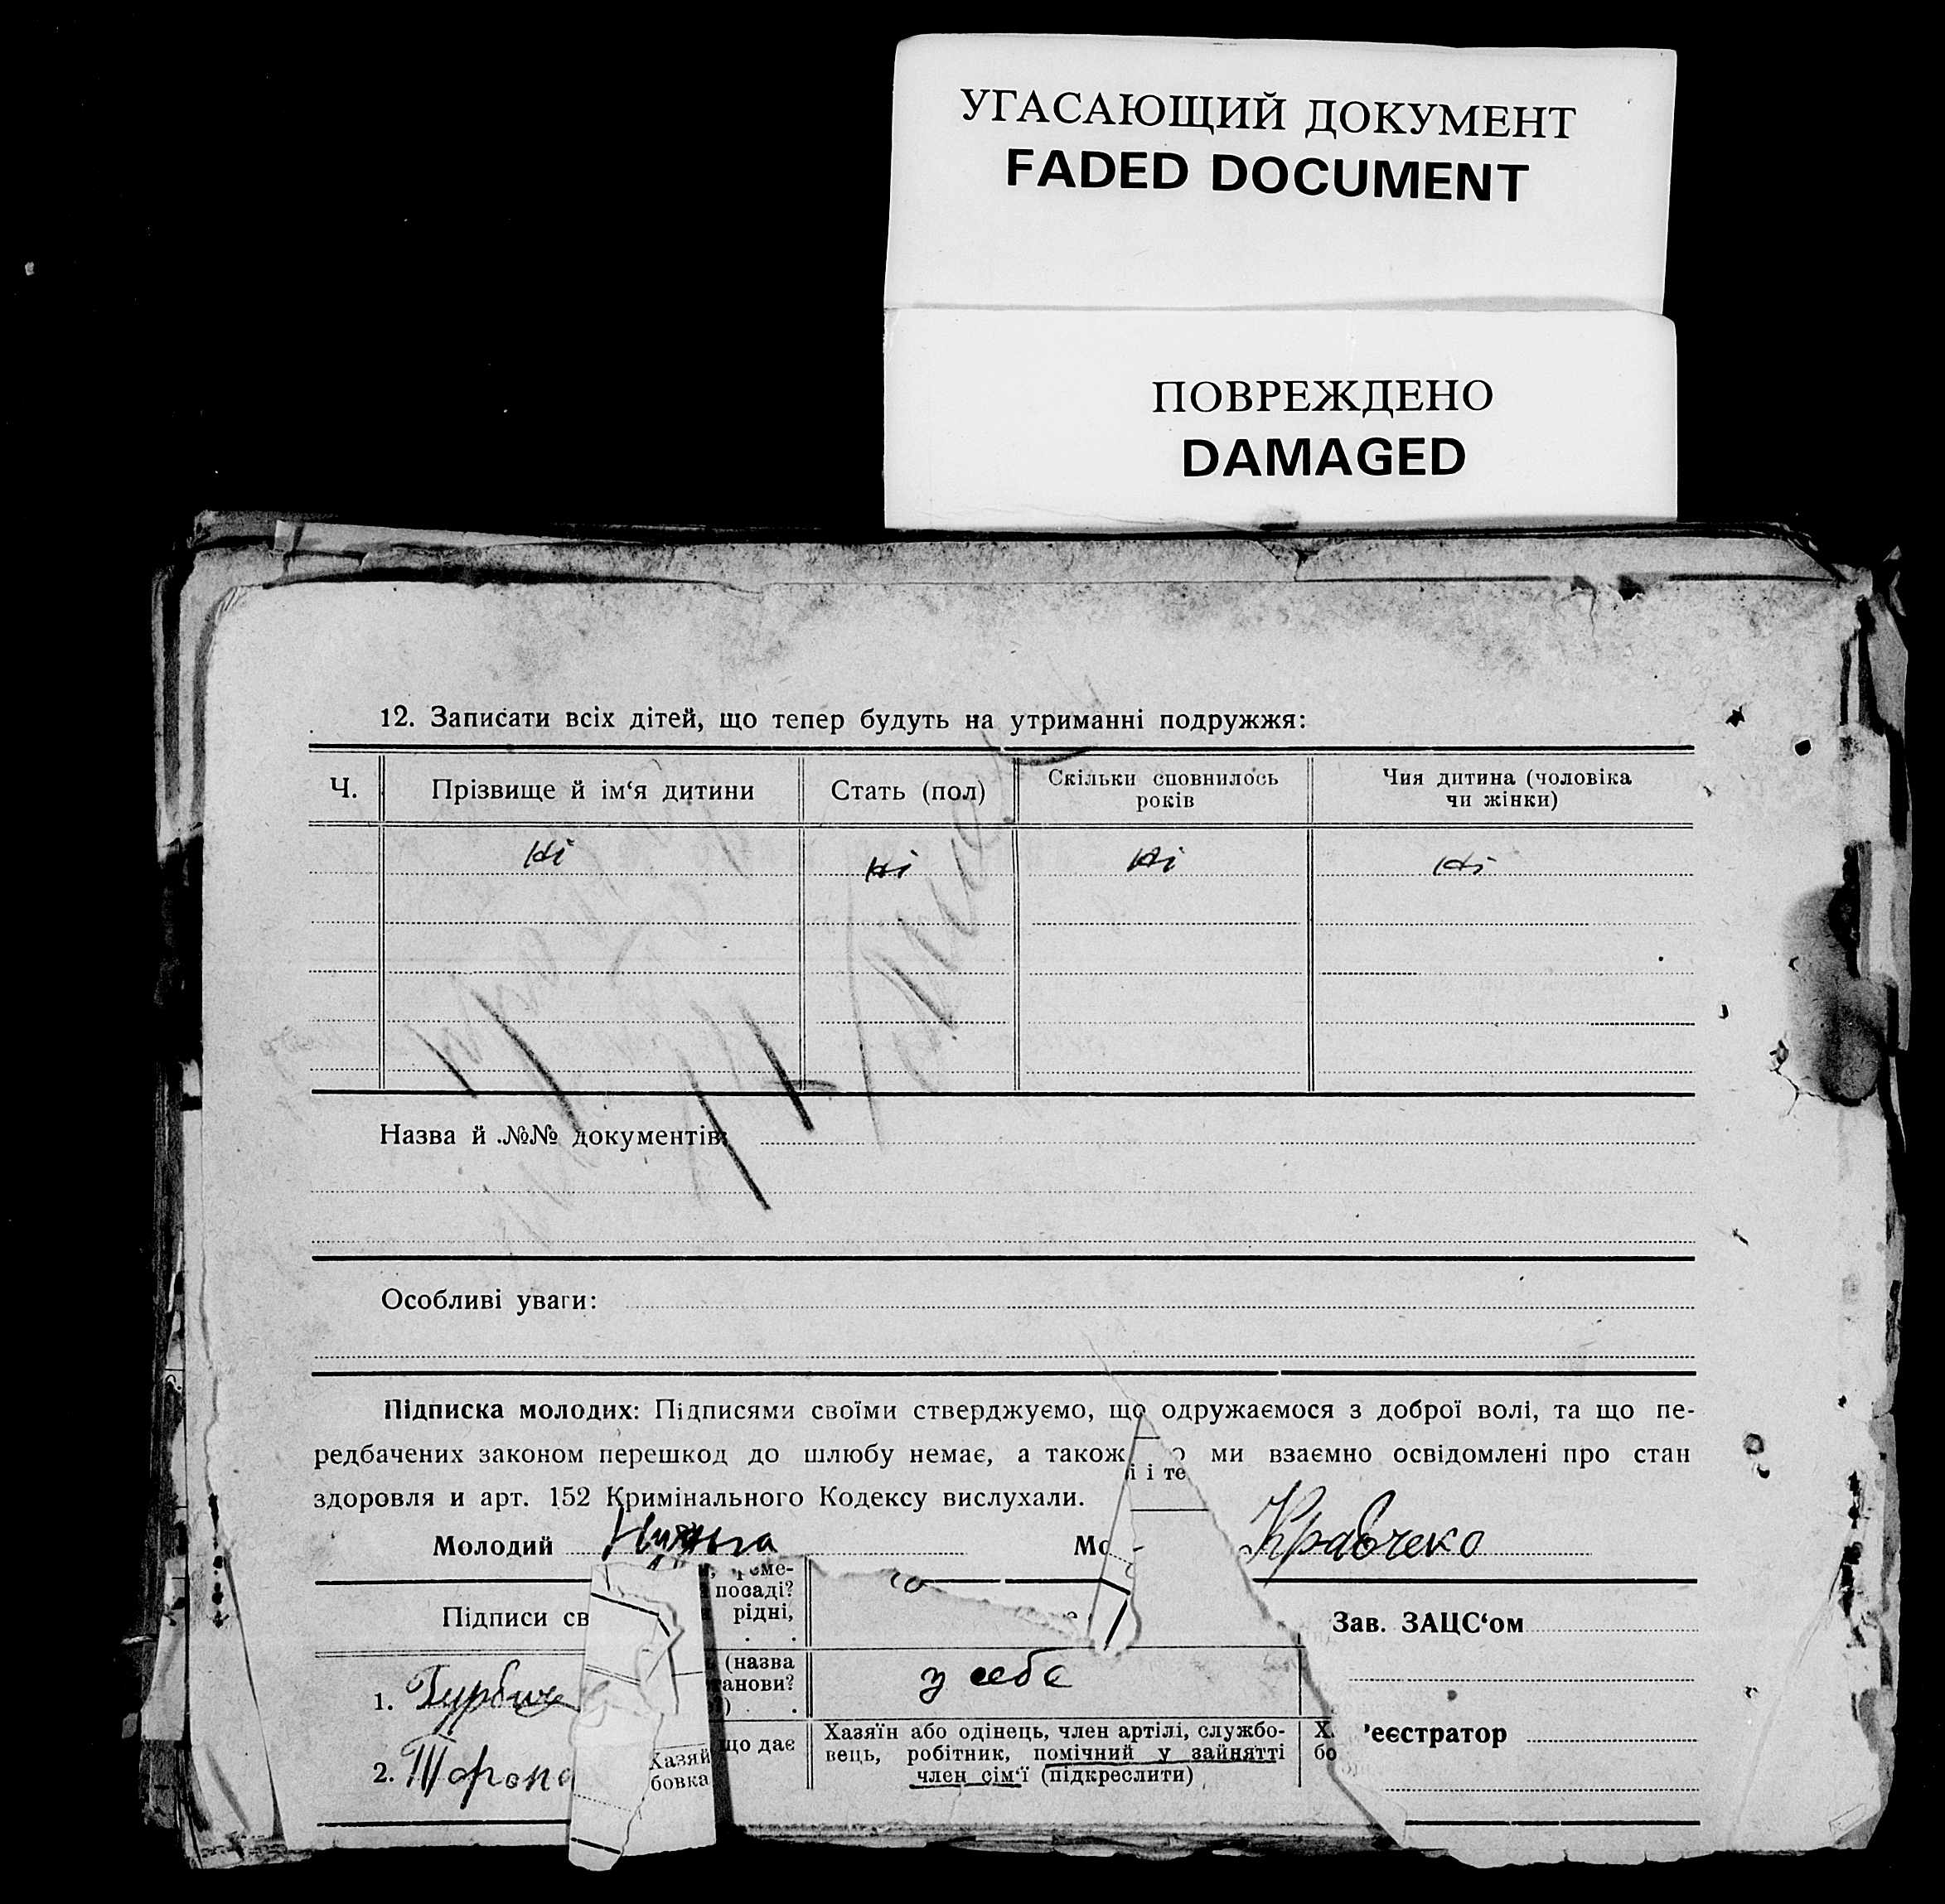 УГАСАЮЩИЙ ДОКУМЕНТ
FADED DOCUMENT
ПОВРЕЖДЕНО
DAMAGED
12. Записати всіх дітей, що тепер будуть на утриманні подружжя:
Ч. Прізвище й ім‘я дитини Стать (пол) Скільки сповнилось років Чия дитина (чоловіка чи жінки)
Ні Ні Ні Ні
Назва й №№ документів:
Особливі уваги:
Підписка молодих: Підписями своїми стверджуємо, що одружаємося з доброї волі, та що пе-
редбачених законом перешкод до шлюбу немає, а також ми взаємно освідомлені про стан
і і те
здоровля и арт. 152 Кримінального Кодексу вислухали.
Молодий Мо Кравчеко
посаді?
рідні,
Підписи св Зав. ЗАЦС‘ом
(назва
анови?
з себе
1.
еєстратор
що дає
Хазяїн або одінець, член артілі, службо-
вець, робітник, помічний у зайнятті
член сім‘ї (підкреслити)
Х
бо
Хазяй
бовка
2.